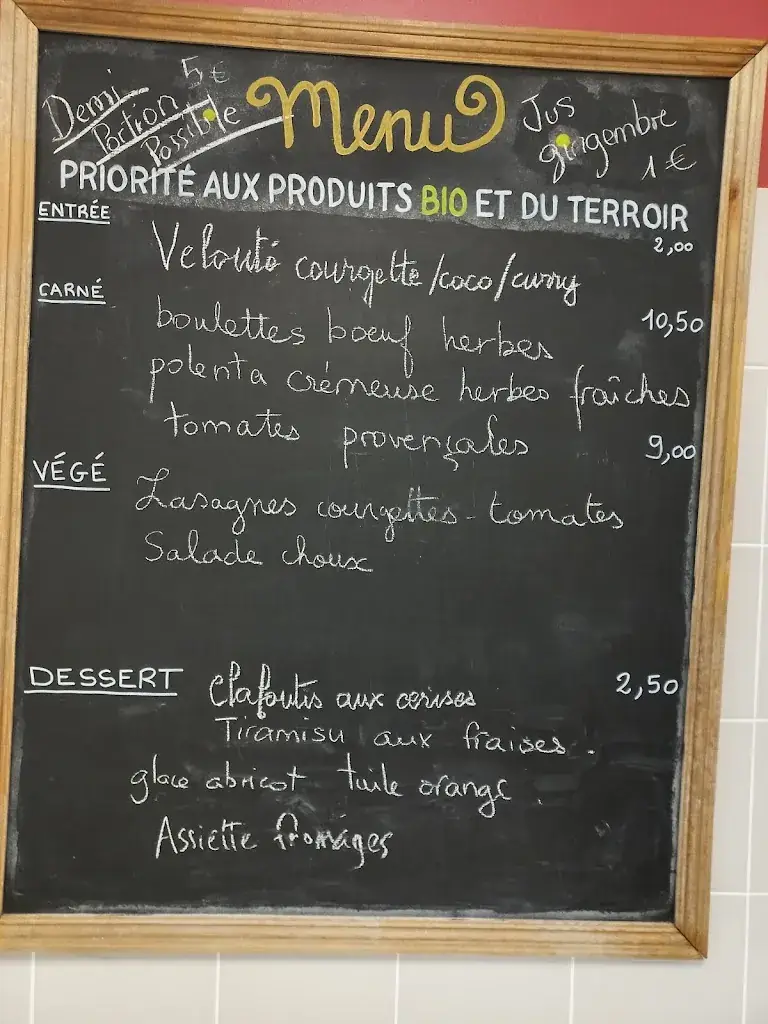 Demi
Portion
Possible
5 €
Menu
Jus
gingembre
1 €
PRIORITÉ AUX PRODUITS BIO ET DU TERROIR
ENTRÉE
2,00
Velouté courgette/coco/curry
CARNÉ
boulettes boeuf herbes
10,50
polenta crémeuse herbes fraîches
tomates provençales
9,00
VÉGÉ
Lasagnes courgettes - tomates
Salade choux
DESSERT
Clafoutis aux cerises
2,50
Tiramisu aux fraises.
glace abricot tuile orange
Assiette fromages